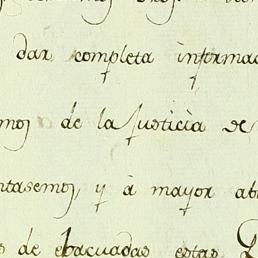 dar completa informac
mos de la Justicia de
ntasemos, y à mayor ab
s de ebacuadas estas